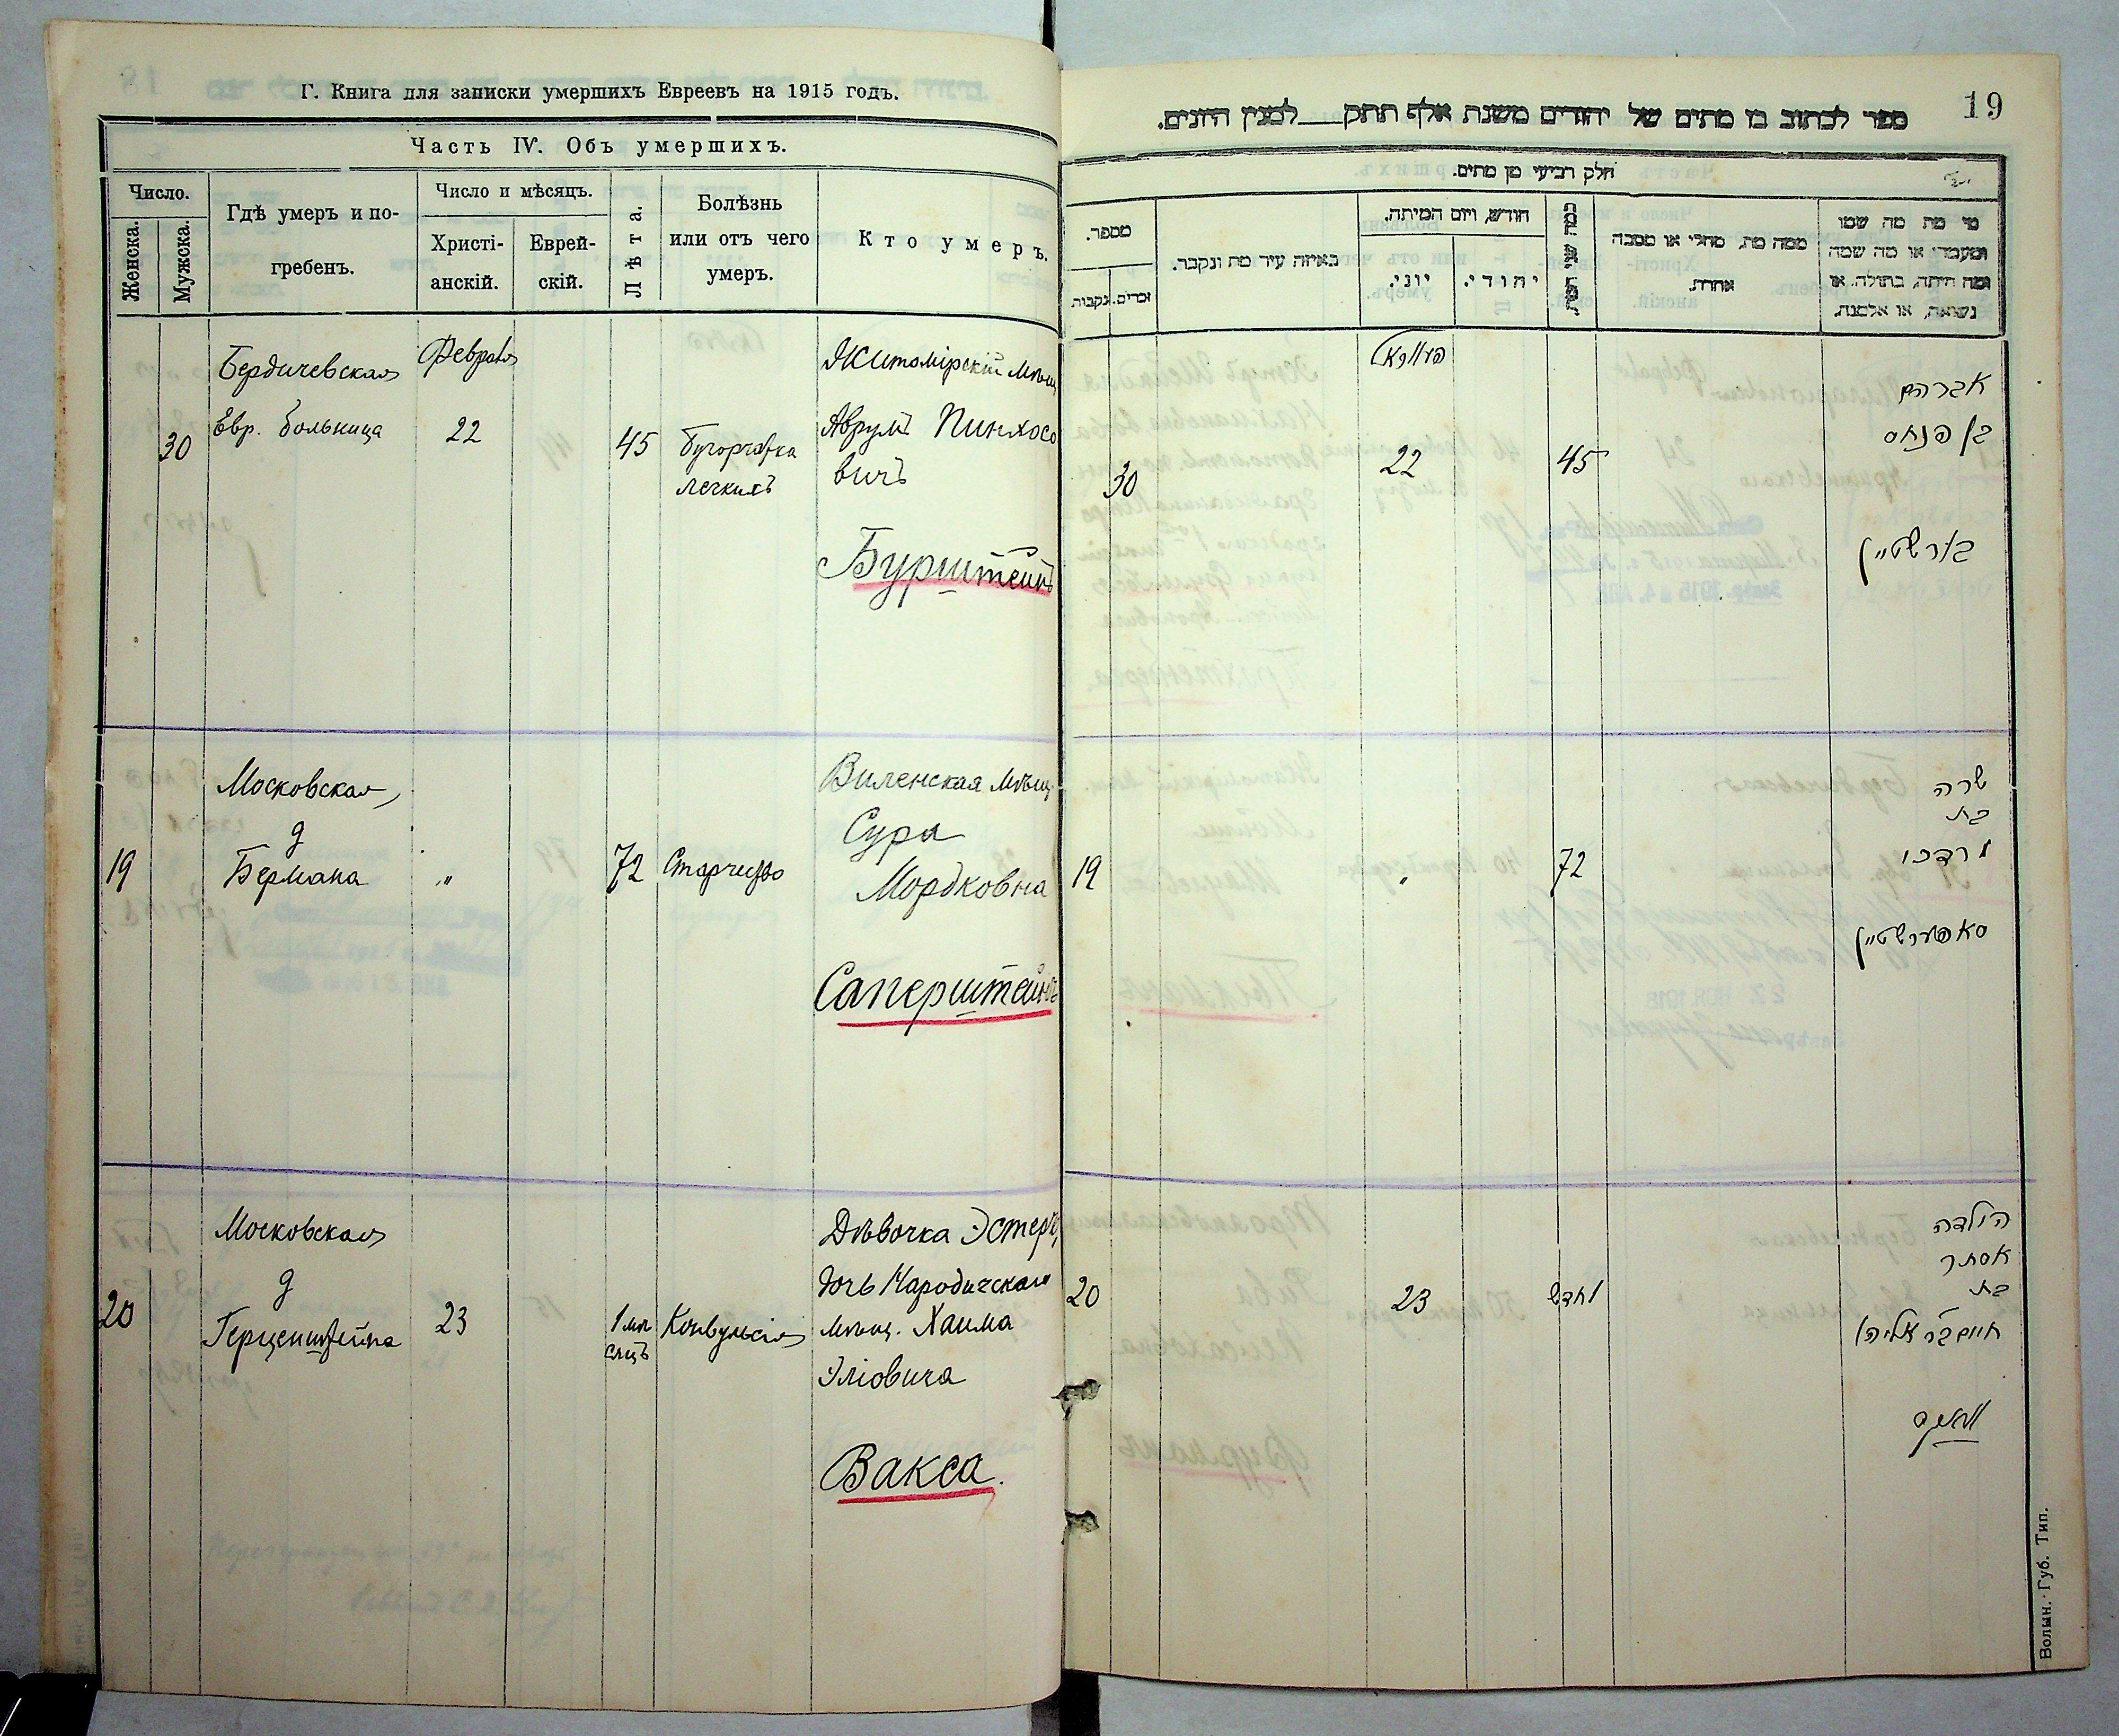 Г. Книга для записки умершихъ Евреевъ на 1915 годъ.
Часть IV. Объ умершихъ.
Число.
Женска.
Мужска.
Гдѣ умеръ и по-
гребенъ.
Число и мѣсяцъ.
Христі-
анскій.
Еврей-
скій.
Лѣта.
Болѣзнь
или отъ чего
умеръ.
Кто умеръ.
30
Бердичевская
Евр. больница
Февраля
22
45
Бугорчатка
легкихъ
Житомірскій мѣщ.
Аврумъ Пинхосо
вичъ
Бурштейнъ
19
Московская,
д
Бермана
"
72
Старчество
Виленская мѣщ.
Сура
Мордковна
Саперштейнъ
20
Московская
д
Герценштейна
23
1 мѣ
сяцъ
Конвульсія
Дѣвочка Эстеръ,
дочь Народичскаго
мѣщ. Хаима
Эліовича
Вакса.
19
ספר לכתוב בו מתים של יהודים משנת אלף תתק למנין היונים.
חלק רביעי מן מתים.
מספר.
נקבות.
זכרים.
באיזה עיר מת ונקבר.
חודש, ויום המיתה.
יוני.
יהודי.
ממה מת, מחלי או מסבה
אחרת.
מי מת מה שמו
ומעמדו או מה שמה
ומה היתה, בתולה, או
נשואה, או אלמנה.
30
22
45
אברהם
בן פנחס
בורשטיין
19
"
72
שרה
בת
מרדכי
סאפערשטיין
20
23
1 חדש
הילדה
אסתר
בת
חיים ב"ר אליהו
Волын. Губ. Тип.